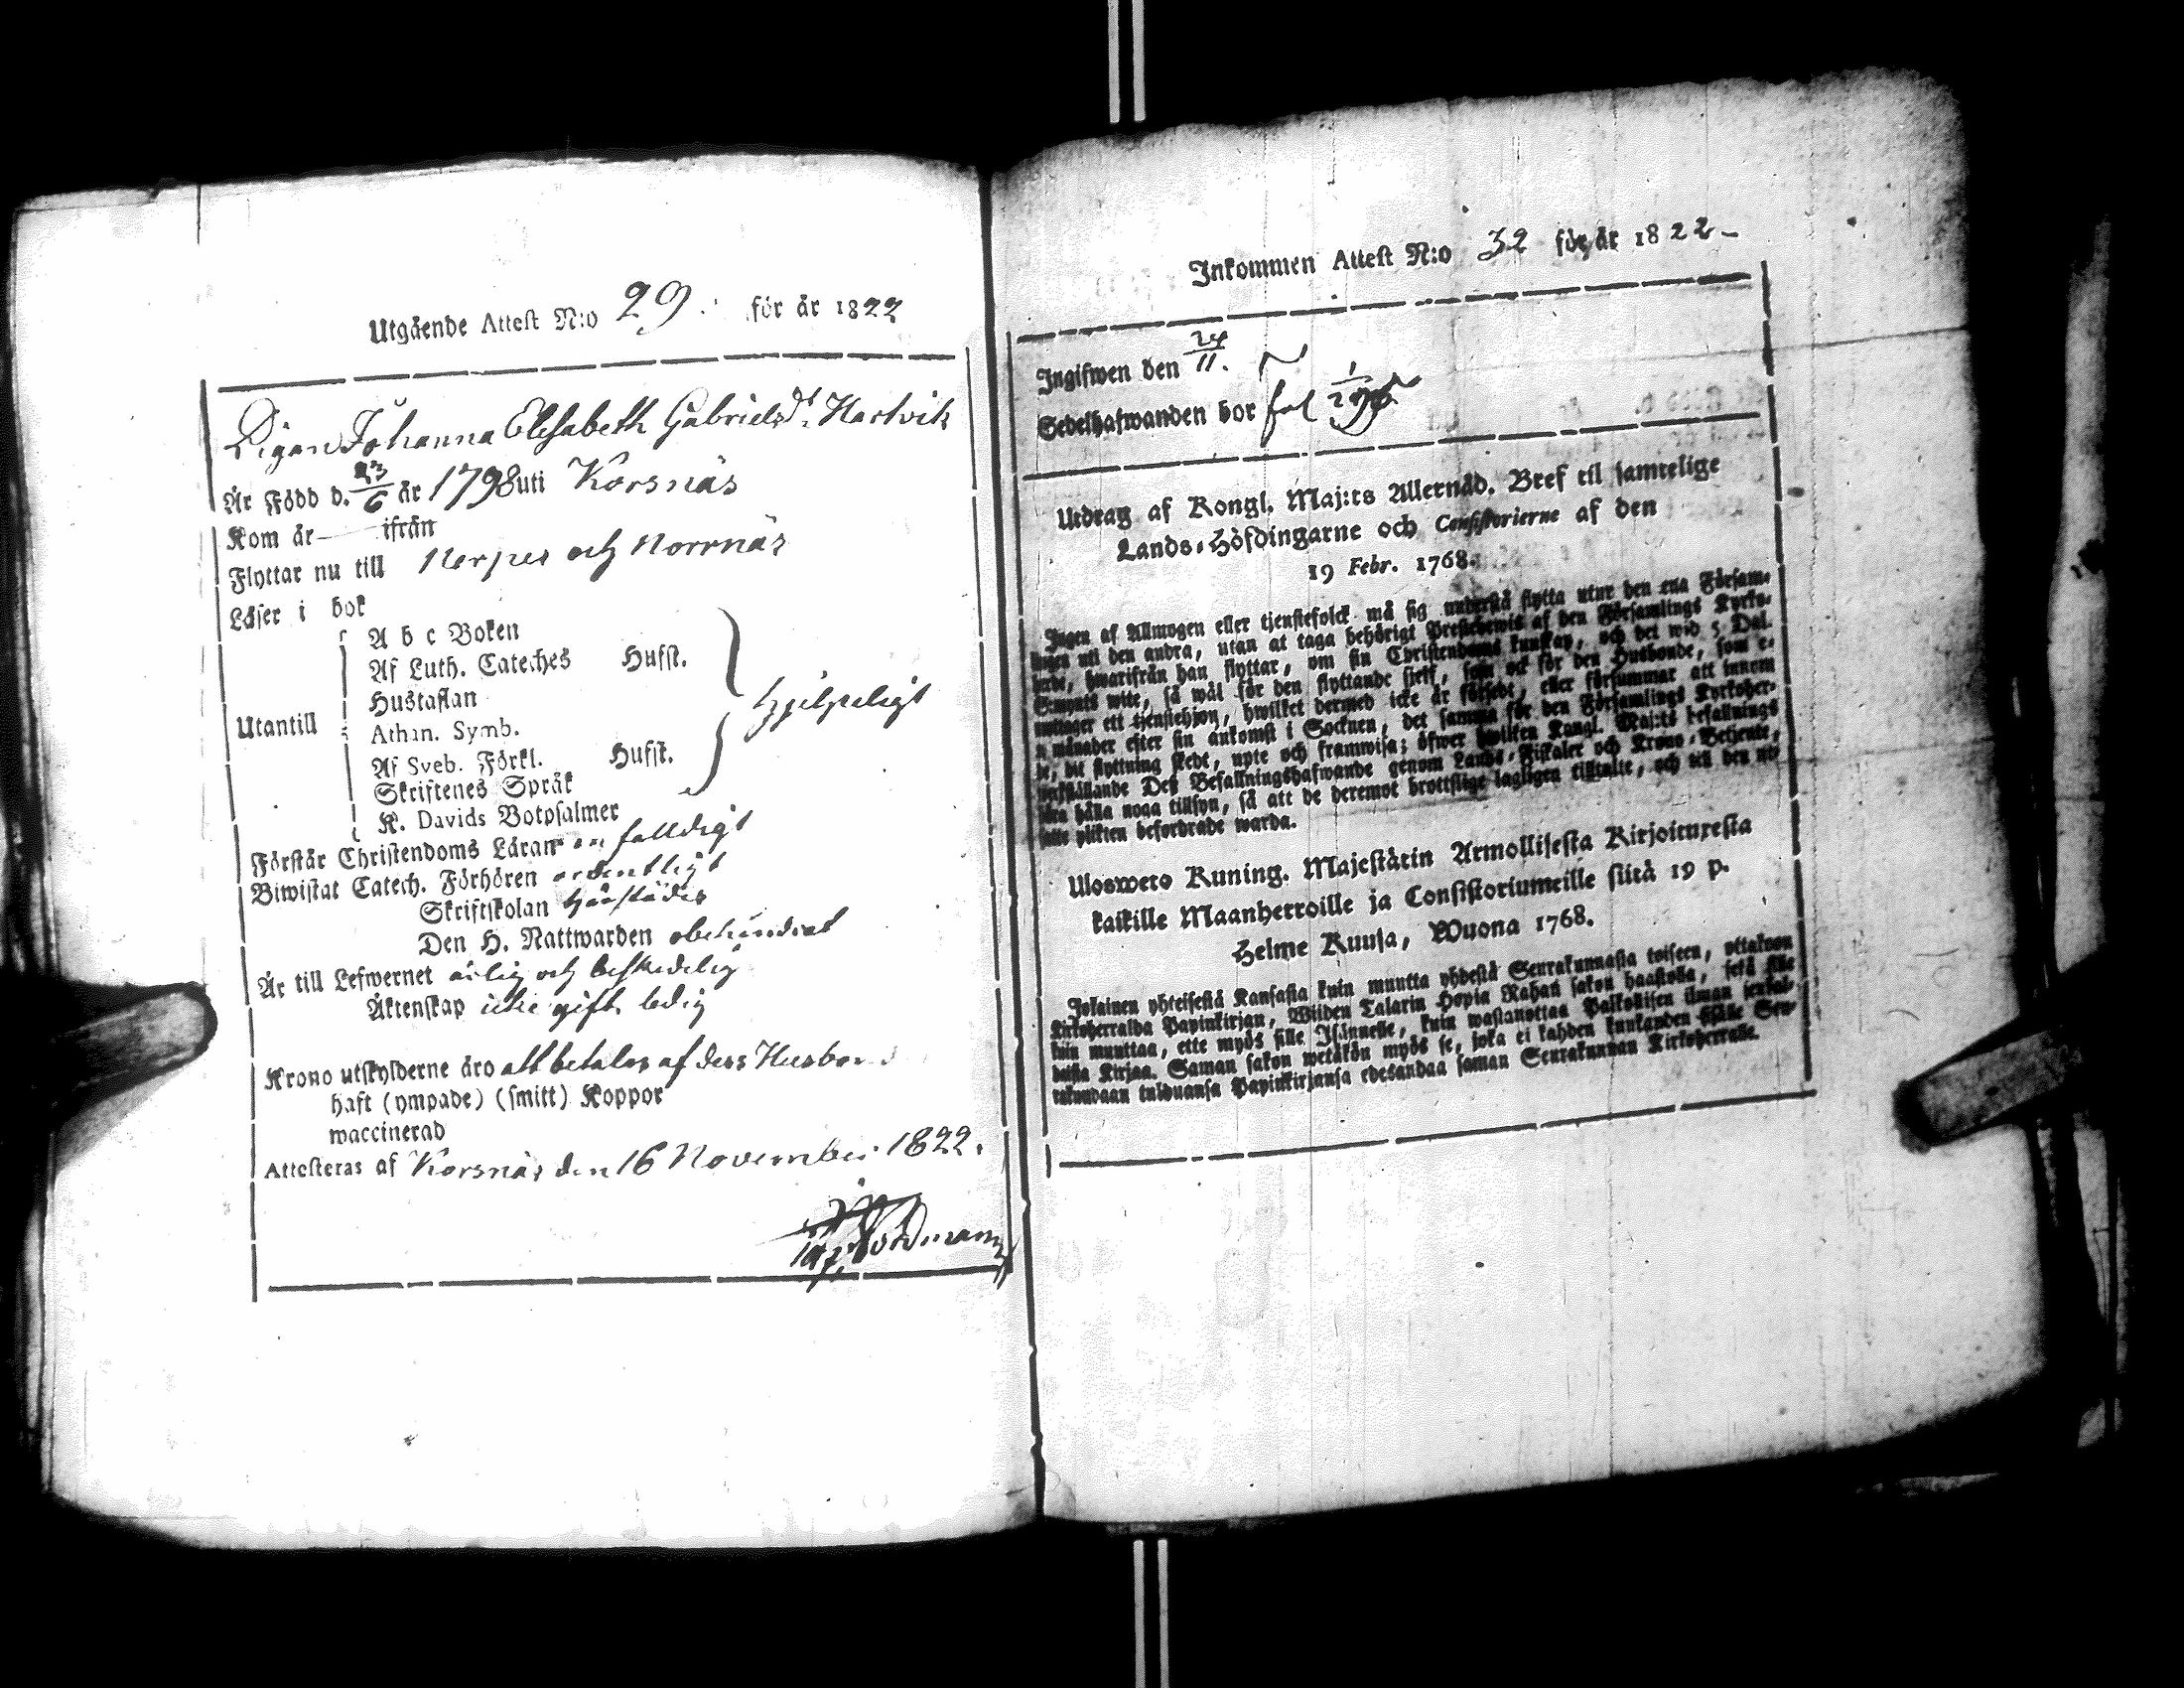 Utgående Attest N:o 29. för år 1822
Pigan Johanna Elisabeth Gabrielsdr. Hartvik
Är Född d. 23/6 år 1798 uti Korsnäs
Kom år — ifrån
Flyttar nu till Nerpes och Norrnäs
Läser i bok
Utantill
A b c Boken
Af Luth. Cateches Hufst.
Hustaflan
Athan. Symb.
Af Sveb. Förkl. Hufst.
Skriftenes Språk
K. Davids Botpsalmer
hjelpeligt
Förstår Christendoms Läran enfalldigt
Biwistat Catech. Förhören ordentligt
Skriftskolan härstädes
Den H. Nattwarden obehindrat
Är till Lefwernet ärlig och beskedelig
Äktenskap icke gift, ledig
Krono utskylderne äro att betalas af dess Husbond
haft (ympade) (smitt) Koppor
waccinerad
Attesteras af Korsnäs den 16 November 1822.
Nordmann
Inkommen Attest N:o 32 för år 1822-
Ingifwen den 24/11.
Sedelhafwanden bor fol
Utdrag af Kongl. Maj:ts Allernåd. Bref til samtelige
Lands-Höfdingarne och Consistorierne af den
19 Febr. 1768.
Ingen af Allmogen eller tjenstefolck må sig understå flytta utur den ena Försam-
lingen uti den andra, utan at taga behörigt Prestebewis af den Församlings Kyrko-
herde, hwarifrån han flyttar, om sin Christendoms kunskap, och det wid 5 Dal.
S:mynts wite, så wäl för den flyttande sjelf, som ock för den Husbonde, som e-
mottager ett tjenstehjon, hwilket dermed icke är försedt, eller försummar att innom
månader efter sin ankomst i Socknen, det samma för den Församlings Kyrkoher-
de, dit flyttning skedt, upte och framwisa; öfwer hwilken Kongl. Maj:ts befallnings
werkställande Dess Befallningshafwande genom Lands-Fiskaler och Krono-Betjente,
böra hålla noga tillsyn, så att de deremot brottslige lagligen tilltalte, och till den ut-
satte plikten befordrade warda.
Uloswето Kuning. Majestätin Armollisesta Kirjoituxesta
kaikille Maanherroille ja Consistoriumeille siitä 19 p.
Helme Kuusa, Wuona 1768.
Jokainen yhteisestä Kansasta kuin muutta yhdestä Seurakunnasta toiseen, ottakoon
Kirkoherralda Papinkirjan, Wiiden Talarin Hopia Rahan sakon haastolla, sekä sille
kuin muuttaa, ette myös sille Isännelle, kuin wastanottaa Palkollisen ilman senkal-
daista Kirjaa. Saman sakon wetäkön myös se, joka ei kahden kuukauden sisälle Seu-
rakundaan tulduansa Papinkirjansa edesandaa saman Seurakunnan Kirkoherralle.